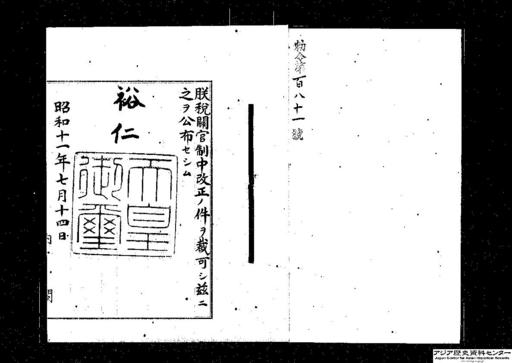 勅令第百八十一號
朕税關官制中改正ノ件ヲ裁可シ茲ニ
之ヲ公布セシム
裕仁
天皇
御璽
昭和十一年七月十四日
内閣
アジア歴史資料センター
Japan Center for Asian Historical Records